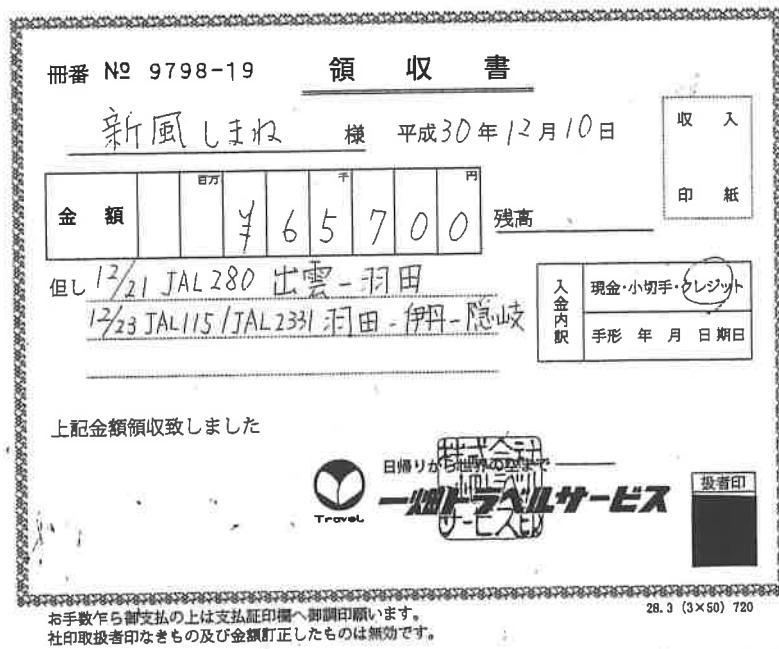 冊番 № 9798-19 領収書
新風しまね 様 平成30年12月10日
収入
印紙
金額 百万 千 円
¥65700
残高
但し 12/21 JAL280 出雲-羽田
12/23 JAL115/JAL2331 羽田-伊丹-隠岐
入金内訳
現金・小切手・クレジット
手形 年 月 日期日
上記金額領収致しました
日帰りから世界の空まで
Travel
一畑トラベルサービス
株式会社
一畑トラベル
サービス印
扱者印
お手数乍ら御支払の上は支払証印欄へ御調印願います。
28.3 (3×50) 720
社印取扱者印なきもの及び金額訂正したものは無効です。